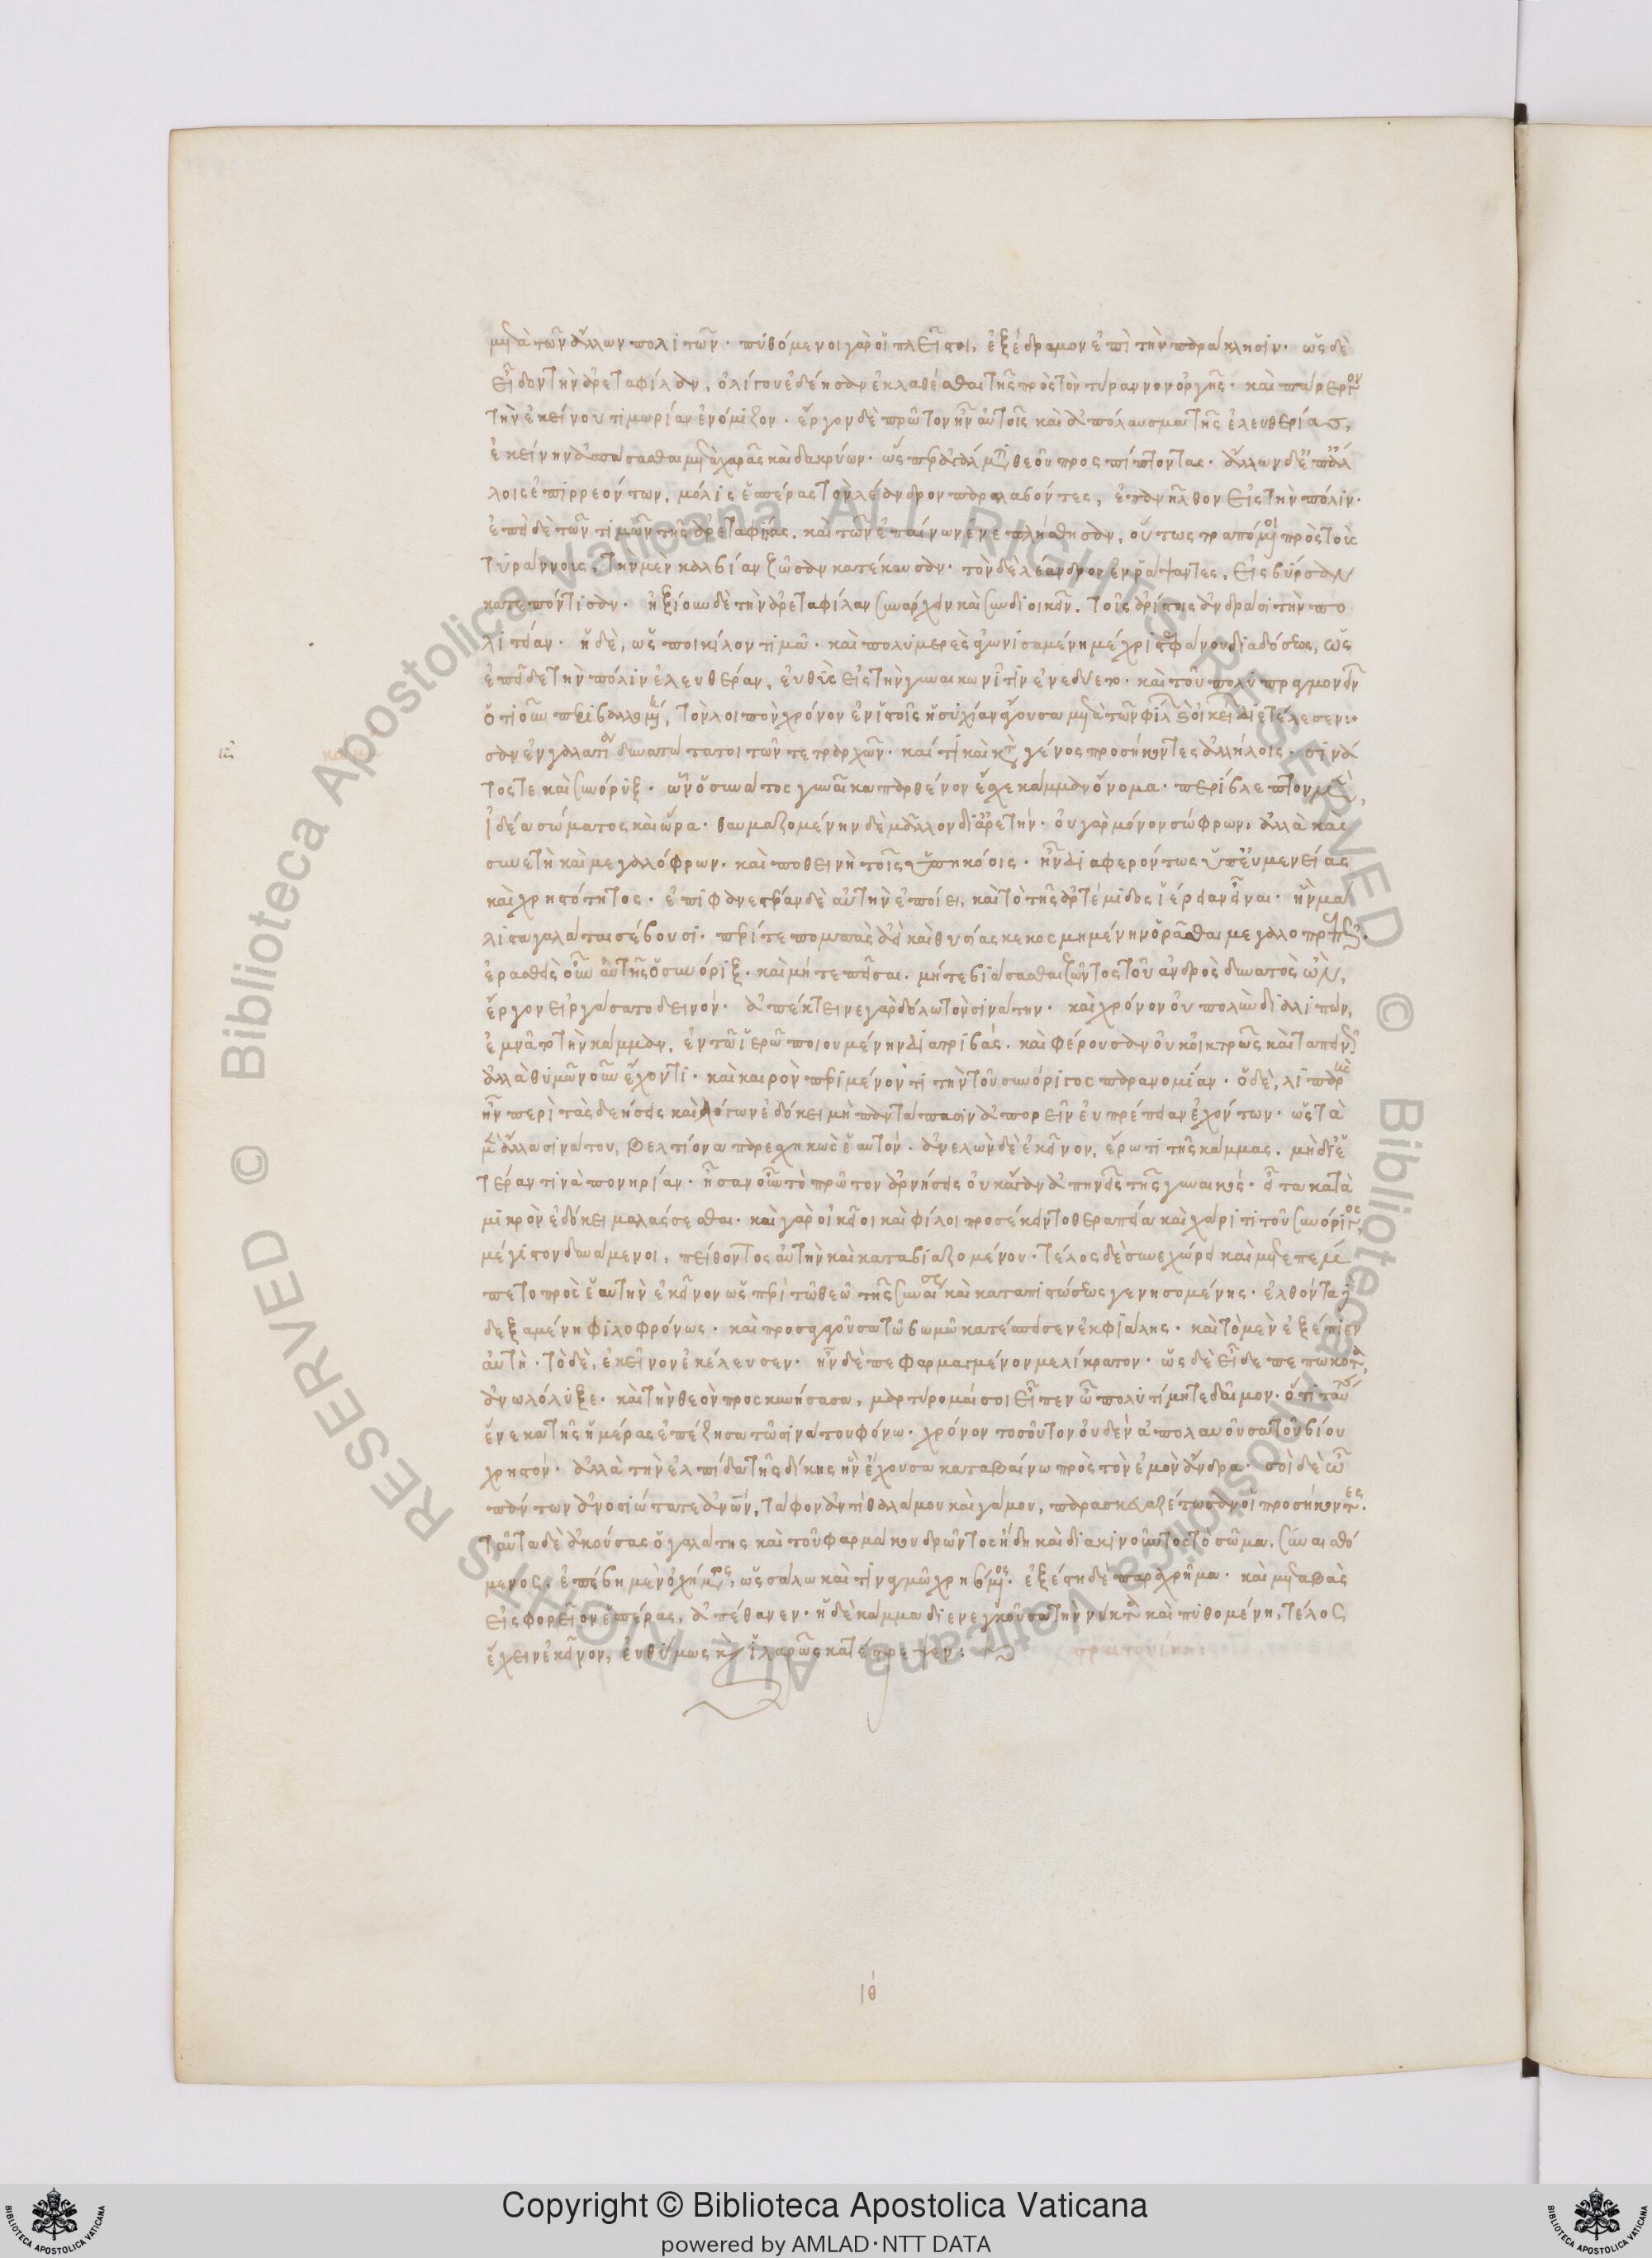 μετὰ τῶν ἄλλων πολιτῶν· πυθόμενοι γὰρ οἱ πλεῖστοι, ἐξέδραμον ἐπὶ τὴν παράκλησιν· ὡς δὲ
εἶδον τὴν ἀρεταφίλαν, ὀλίγου ἐδέησαν ἐκλαθέσθαι τῆς πρὸς τὸν τύραννον ὀργῆς· καὶ πάρεργον
τὴν ἐκείνου τιμωρίαν ἐνόμιζον· ἔργον δὲ πρῶτον ἦν αὐτοῖς καὶ ἀπόλαυσμα τῆς ἐλευθερίας,
ἐκείνην ἀσπάσασθαι μετὰ χαρᾶς καὶ δακρύων· ὥσπερ ἀγάλματι θεοῦ προσπίπτοντας· ἄλλων δὲ ἐπ' ἄλ
λοις ἐπιρρεόντων, μόλις ἑσπέρας τὸν λέανδρον παραλαβόντες, ἐπανῆλθον εἰς τὴν πόλιν·
ἐπεὶ δὲ τῶν τιμῶν τῆς ἀρεταφίλας, καὶ τῶν ἐπαίνων ἐνεπλήσθησαν, οὕτως τραπόμενοι πρὸς τοὺς
τυράννους, τὴν μὲν καλβίαν ζῶσαν κατέκαυσαν· τὸν δὲ λέανδρον ἐνράψαντες, εἰς βύρσαν
κατεπόντισαν· ἠξίουν δὲ τὴν ἀρεταφίλαν συνάρχειν καὶ συνδιοικεῖν, τοῖς ἀρίστοις ἀνδράσι τὴν πο
λιτείαν· ἡ δὲ, ὡς ποικίλον τι δρᾶμα· καὶ πολυμερὲς ἀγωνισαμένη μέχρι στεφάνου διαδόσεως, ὡς
ἐπεῖδε τὴν πόλιν ἐλευθέραν, εὐθὺς εἰς τὴν γυναικωνῖτιν ἐνεδύετο· καὶ τοῦ πολυπραγμονεῖν
ὁτιοῦν παραβαλλομένη, τὸν λοιπὸν χρόνον ἐν ἱστοῖς ἡσυχίαν ἄγουσα μετὰ τῶν φίλων καὶ οἰκείων διετέλεσεν:+
σαν ἐν γαλατίᾳ δυνατώτατοι τῶν τετραρχῶν· καί τι καὶ κατὰ γένος προσήκοντες ἀλλήλοις· σινά
τος τε καὶ συνόριξ· ὧν ὁ σινάτος γυναῖκα παρθένον ἔσχε κάμμαν ὄνομα· περίβλεπτον μὲν,
ἰδέᾳ σώματος καὶ ὥρᾳ· θαυμαζομένην δὲ μᾶλλον δι' ἀρετήν· οὐ γὰρ μόνον σώφρων, ἀλλὰ καὶ
συνετὴ καὶ μεγαλόφρων· καὶ ποθεινὴ τοῖς ὑπηκόοις· ἦν διαφερόντως ὑπ' εὐμενείας
καὶ χρηστότητος· ἐπιφανεστέραν δὲ αὐτὴν ἐποίει, καὶ τὸ τῆς ἀρτέμιδος ἱέρειαν εἶναι· ἣν μά
λιστα γαλάται σέβουσι· περί τε πομπὰς ἀεὶ καὶ θυσίας κεκοσμημένην ὁρᾶσθαι μεγαλοπρεπῶς.
ἐρασθεὶς οὖν αὐτῆς ὁ συνόριξ· καὶ μήτε πεῖσαι, μήτε βιάσασθαι ζῶντος τοῦ ἀνδρὸς δυνατὸς ὢν,
ἔργον εἰργάσατο δεινόν· ἀπέκτεινε γὰρ δόλῳ τὸν σινάτην· καὶ χρόνον οὐ πολὺν διαλιπὼν,
ἐμνᾶτο τὴν κάμμαν, ἐν τῷ ἱερῷ ποιουμένην διατριβάς· καὶ φέρουσαν οὐκ οἰκτρῶς καὶ ταπεινῶς
ἀλλὰ θυμῷ νοῦν ἔχοντι· καὶ καιρὸν περιμένοντι τὴν τοῦ συνόριγος παρανομίαν· ὁ δὲ, λιπαρὴς
ἦν περὶ τὰς δεήσεις καὶ λόγων ἐδόκει μὴ παντάπασιν ἀπορεῖν εὐπρέπειαν ἐχόντων· ὡς τὰ
μὲν ἄλλα σινάτου, βελτίονα παρεσχηκὼς ἑαυτόν· ἀνελὼν δὲ ἐκεῖνον, ἔρωτι τῆς κάμμας, μὴ δι' ἑ
τέραν τινὰ πονηρίαν· ἦσαν οὖν τὸ πρῶτον ἀρνήσεις οὐκ ἄγαν ἀπηνεῖς τῆς γυναικός· εἶτα κατὰ
μικρὸν ἐδόκει μαλάσσεσθαι· καὶ γὰρ οἰκεῖοι καὶ φίλοι προσέκειντο θεραπείᾳ καὶ χάριτι τοῦ συνόριγος
μέγιστον δυναμένου, πείθοντες αὐτὴν καὶ καταβιαζομένου· τέλος δὲ συνεχώρει καὶ μετεπέμ
πετο πρὸς ἑαυτὴν ἐκεῖνον ὡς παρὰ τῷ θεῷ τῆς συναινέσεως καὶ καταπιστώσεως γενησομένης· ἐλθόντα δὲ
δεξαμένη φιλοφρόνως· καὶ προσαγαγοῦσα τῷ βωμῷ κατέσπεισεν ἐκ φιάλης· καὶ τὸ μὲν ἐξέπιεν
αὐτὴ· τὸ δὲ, ἐκεῖνον ἐκέλευσεν· ἦν δὲ πεφαρμαγμένον μελίκρατον· ὡς δὲ εἶδε πεπωκότα,
ἀνωλόλυξε· καὶ τὴν θεὸν προσκυνήσασα, μαρτύρομαί σοι εἶπεν ὦ πολυτίμητε δαῖμον· ὅτι ταύτης
ἕνεκα τῆς ἡμέρας ἐπέζησα τῷ σινάτου φόνῳ· χρόνον τοσοῦτον οὐδὲν ἀπολαύουσα τοῦ βίου
χρηστόν· ἀλλὰ τὴν ἐλπίδα τῆς δίκης ἣν ἔχουσα καταβαίνω πρὸς τὸν ἐμὸν ἄνδρα· σοὶ δὲ ὦ
πάντων ἀνοσιώτατε ἀνθρώπων, τάφον ἀντὶ θαλάμου καὶ γάμου, παρασκευαζέτωσαν οἱ προσήκοντες.
ταῦτα δὲ ἀκούσας ὁ γαλάτης καὶ τοῦ φαρμάκου δρῶντος ἤδη καὶ διακινοῦντος τὸ σῶμα, συναισθό
μενος, ἐπέβη μὲν ὀχήματος, ὡς σάλῳ καὶ τιναγμῷ χρησόμενος· ἐξέστη δὲ παραχρῆμα· καὶ μεταβὰς
εἰς φορεῖον ἑσπέρας, ἀπέθανεν· ἡ δὲ κάμμα διενεγκοῦσα τὴν νύκτα καὶ πυθομένη, τέλος
ἔχειν ἐκεῖνον, εὐθύμως καὶ ἱλαρῶς κατέστρεψεν:
ιθ
Copyright © Biblioteca Apostolica Vaticana
powered by AMLAD·NTT DATA